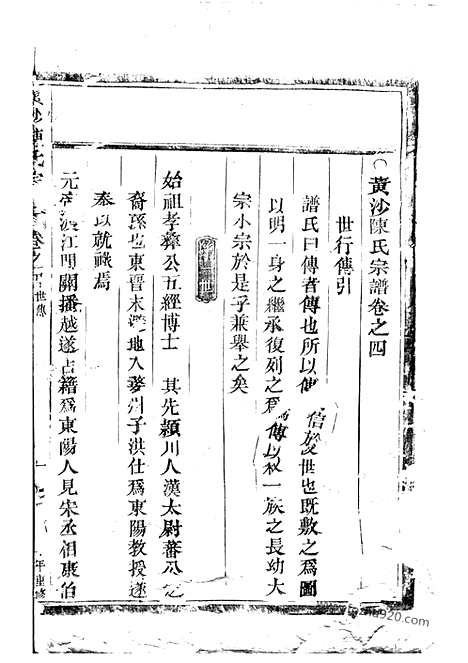 黃沙陳氏宗譜卷之四
世行傳引
譜氏曰傳者傳也所以傳信於世也既敷之為圖
以明一身之繼承復列之為傳以敘一族之長幼大
宗小宗於是乎兼舉之矣
始祖孝彝公五經博士 其先潁川人漢太尉蕃公之
裔孫也東晉末避地入婺州子洪仕為東陽教授遂
奉以就祿焉
元帝渡江門關播越遂占籍為東陽人見宋丞相康伯